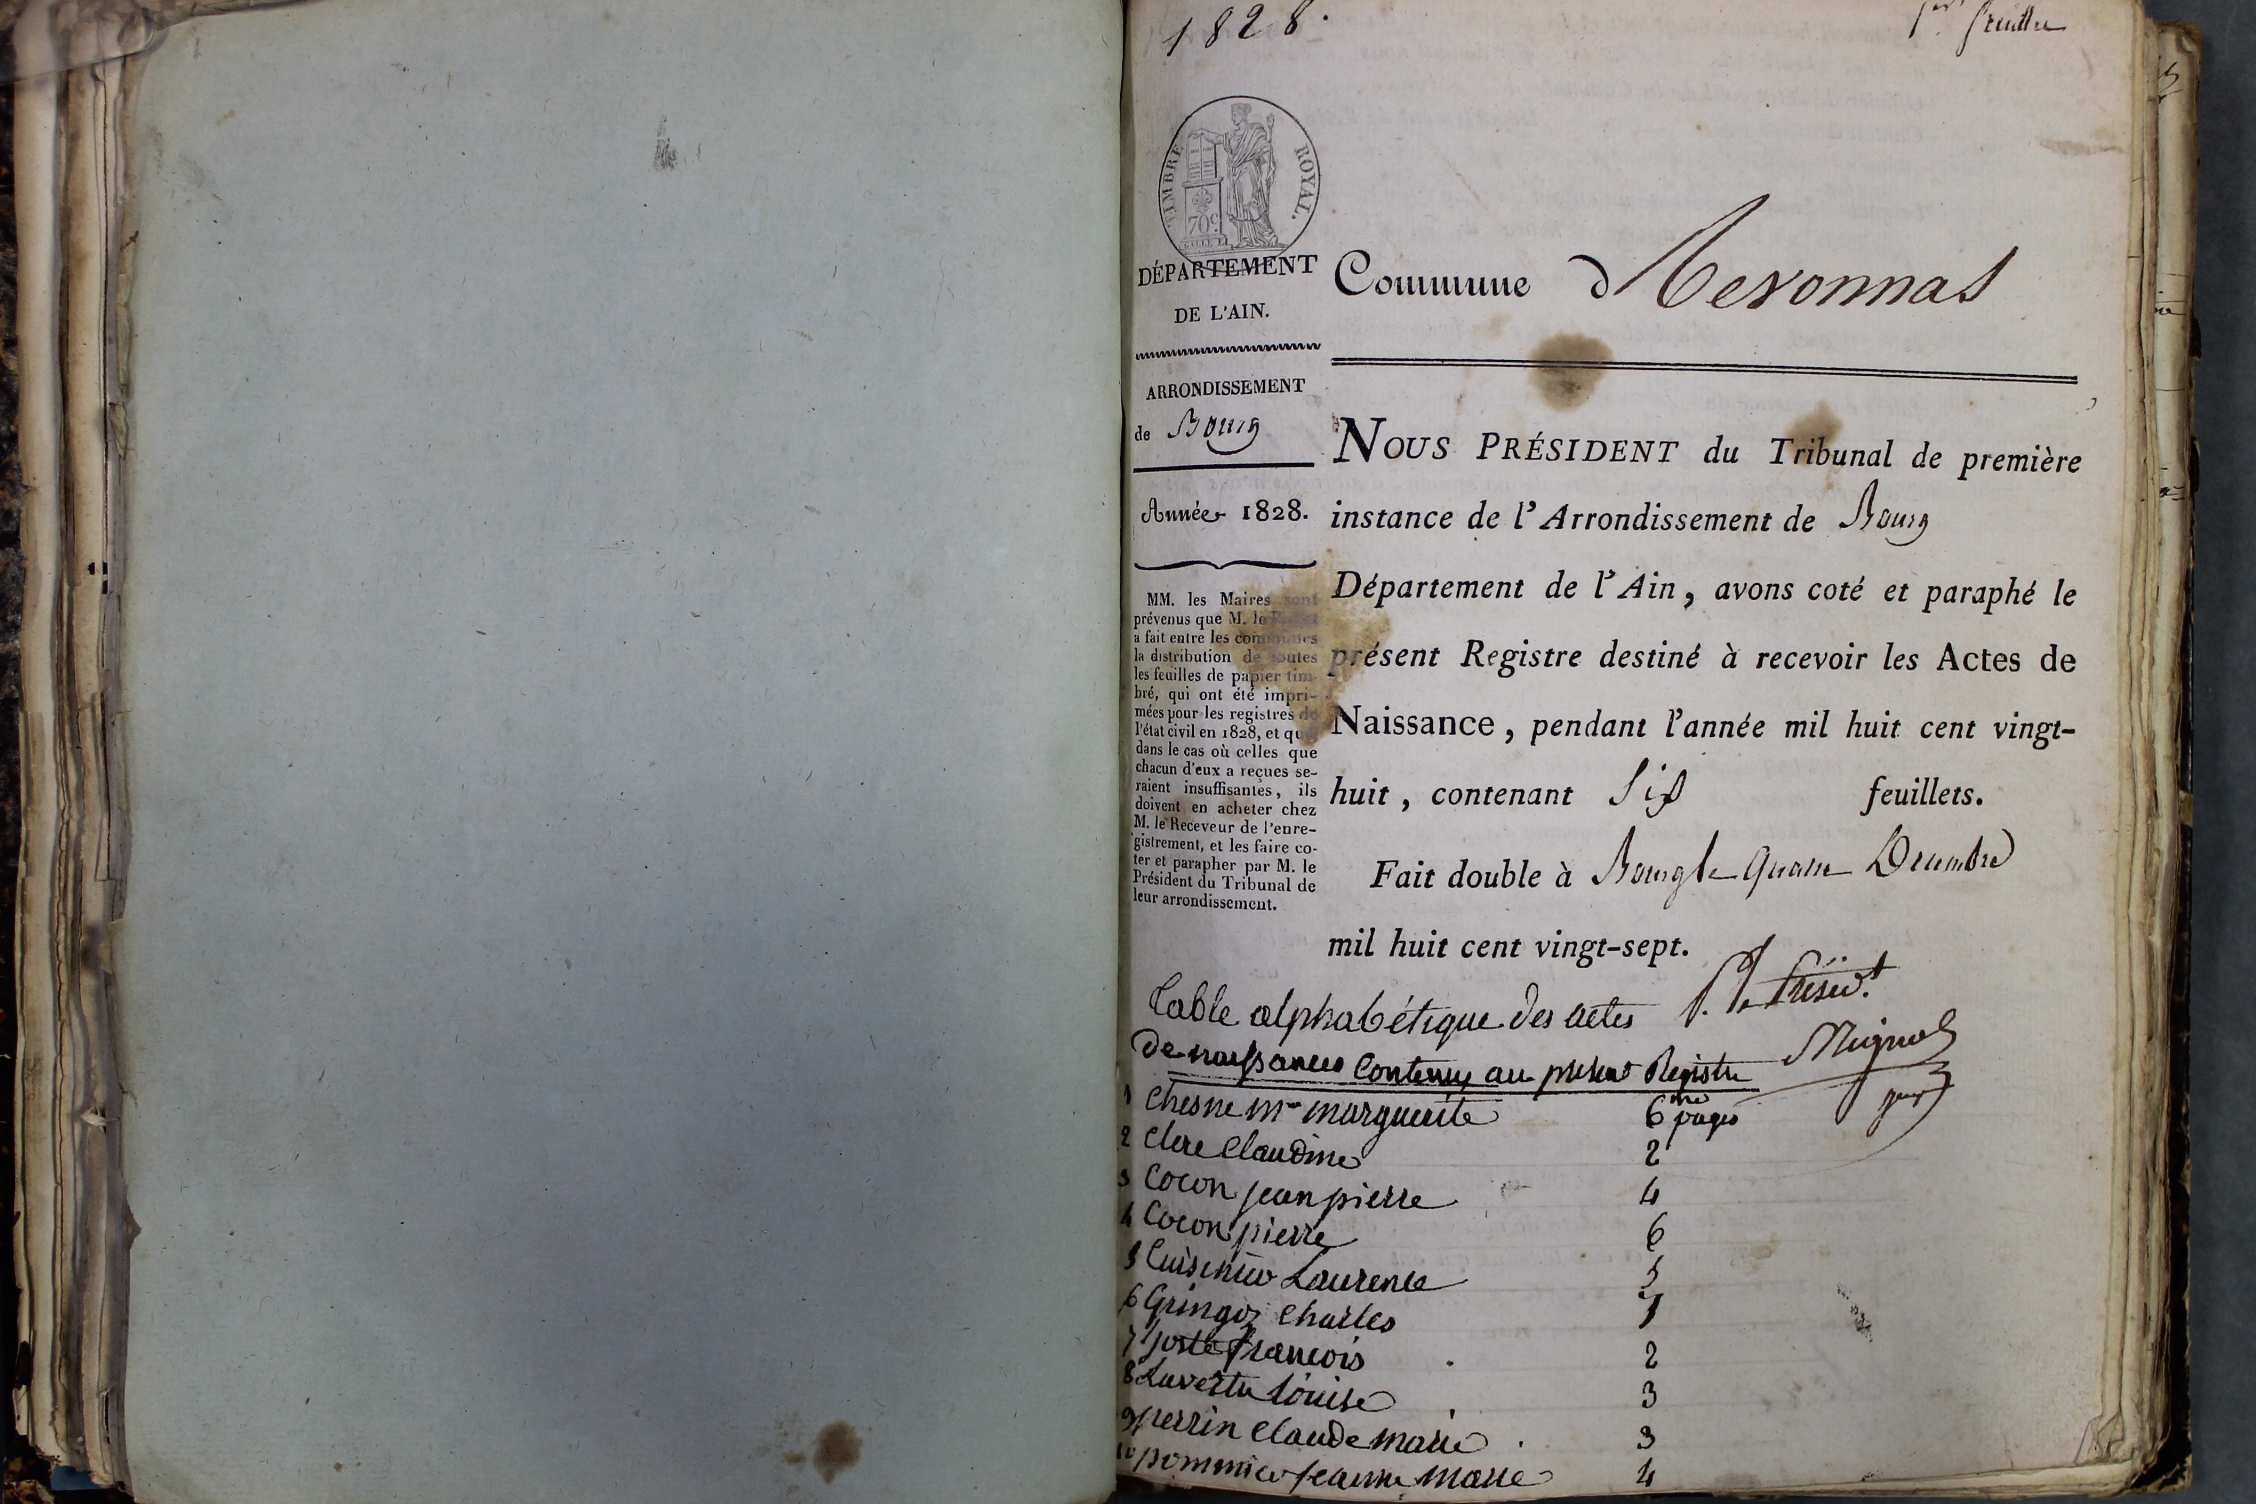 1828.
1er feuillet
TIMBRE ROYAL.
70c
DÉPARTEMENT
DE L'AIN.
ARRONDISSEMENT
de Bourg
Année 1828.
MM. les Maires sont
prévenus que M. le Préfet
a fait entre les communes
la distribution de toutes
les feuilles de papier tim-
bré, qui ont été impri-
mées pour les registres de
l'état civil en 1828, et que
dans le cas où celles que
chacun d'eux a reçues se-
raient insuffisantes, ils
doivent en acheter chez
M. le Receveur de l'enre-
gistrement, et les faire co-
ter et parapher par M. le
Président du Tribunal de
leur arrondissement.
Commune d
NOUS PRÉSIDENT du Tribunal de première
instance de l'Arrondissement de Bourg
Département de l'Ain, avons coté et paraphé le
présent Registre destiné à recevoir les Actes de
Naissance, pendant l'année mil huit cent vingt-
huit, contenant Six feuillets.
Fait double à Bourg le Décembre
mil huit cent vingt-sept.
P. le Présidt
Table alphabétique des actes
de naissances Contenus au présent Registre
1 Chesne Mie marguerite 6me pages
2 Clere Claudine 2
3 Cocon jean pierre 4
4 Cocon pierre 6
5 Laurence 5
6 Gringoz Charles 1
7 françois 2
8 Lavertu Louise 3
9 perrin Claude marie 3
10 pommier jeanne Marie 4